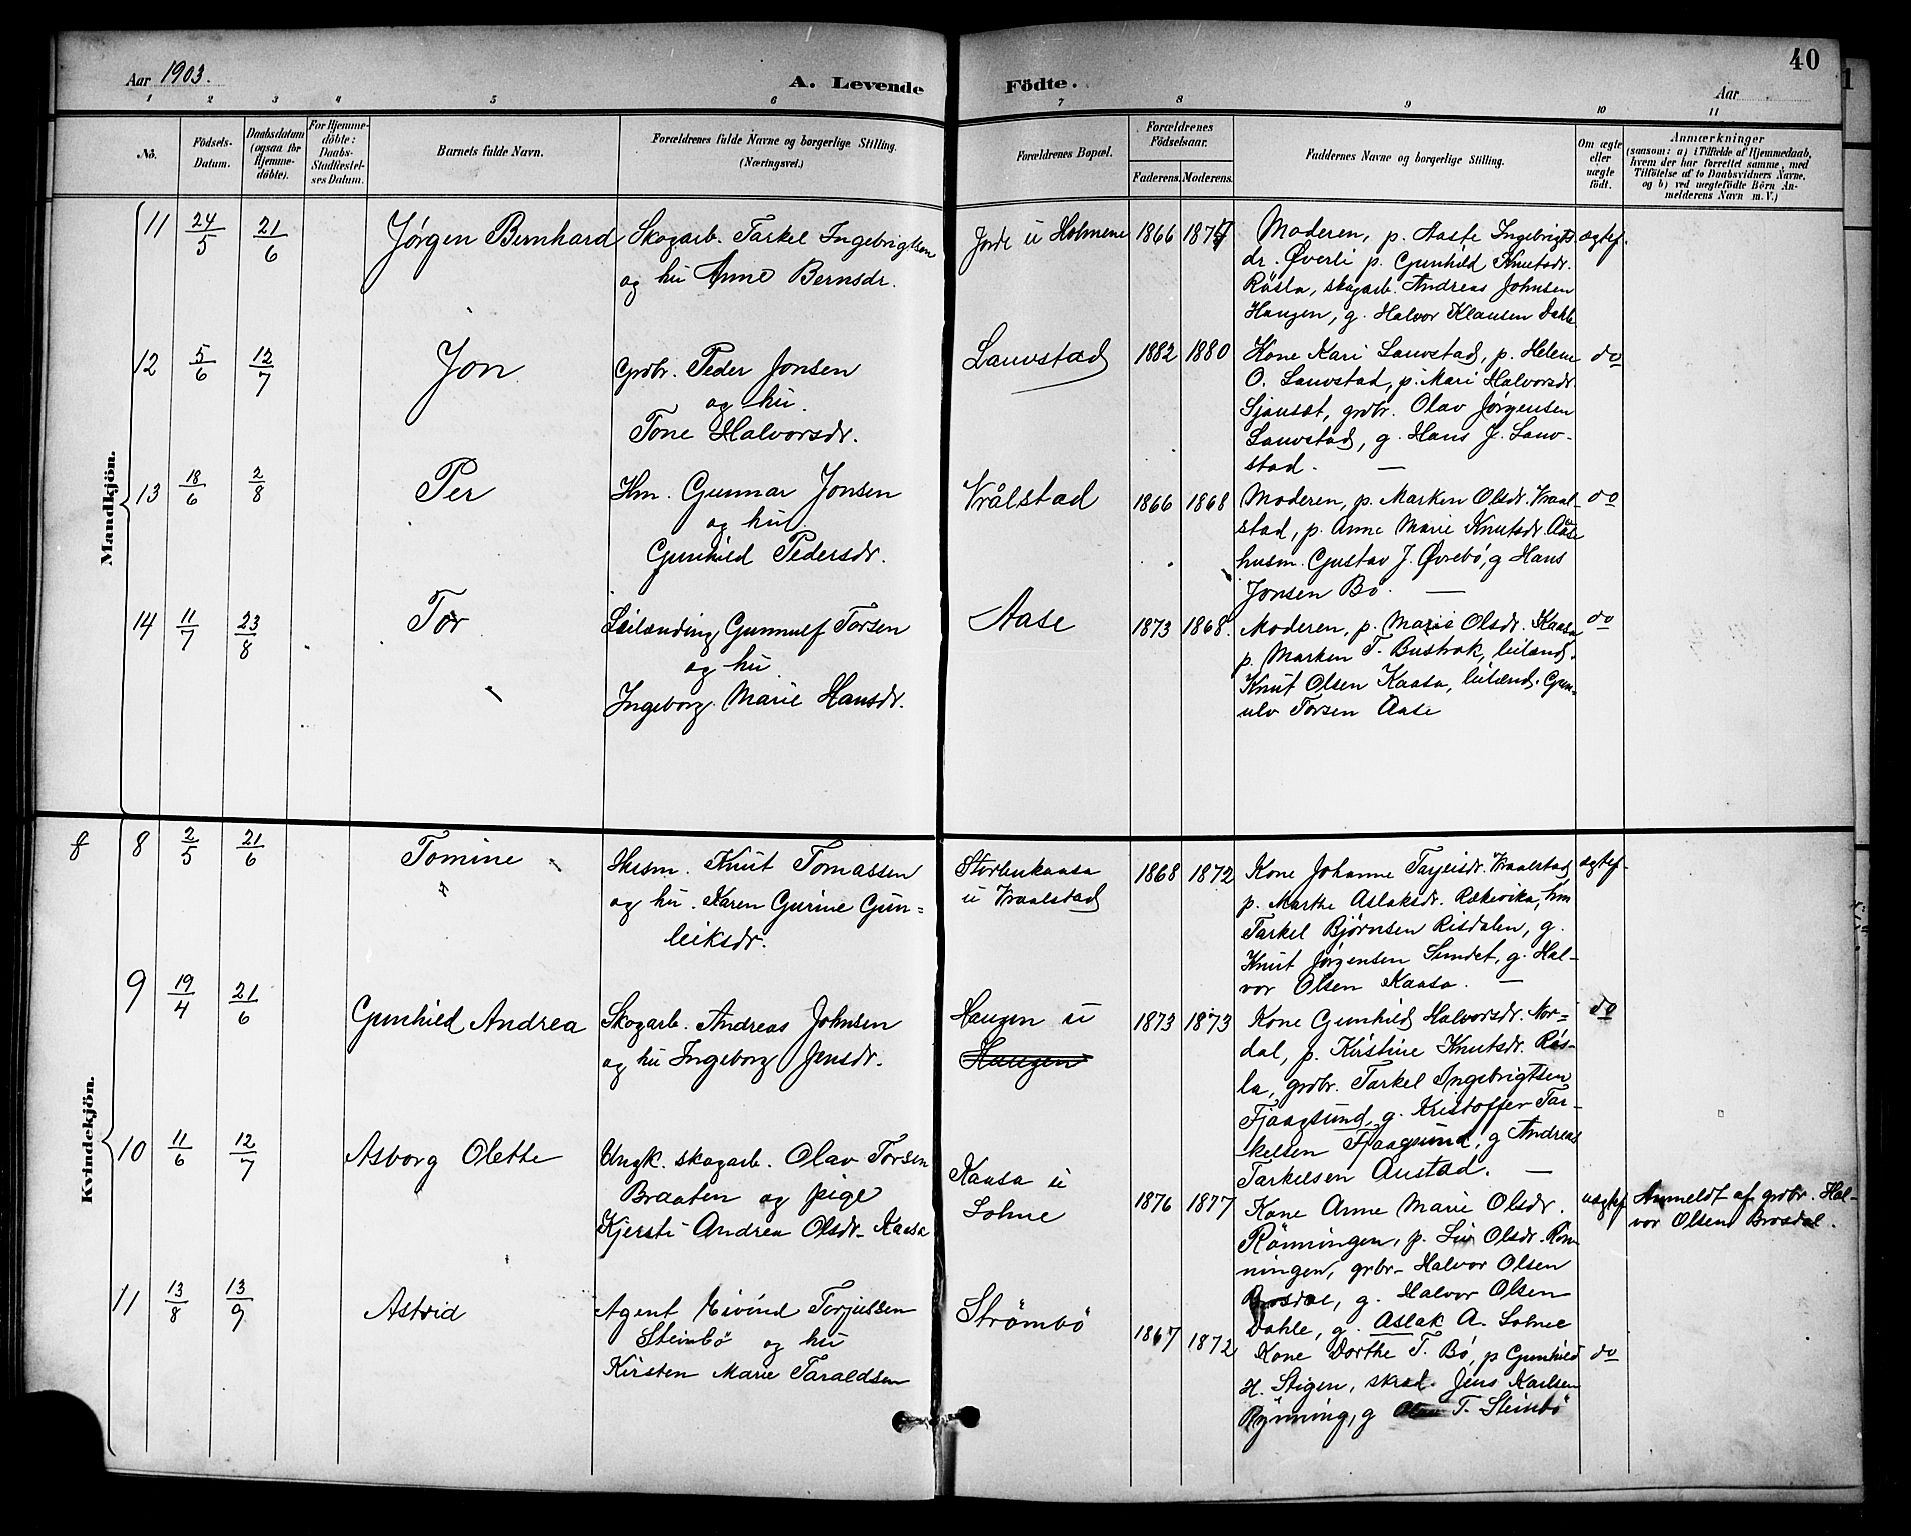 40
Aar 1903.
A. Levende Födte.
Aar
1 2 3 4 5 6 7 8 9 10 11
No.
Födsels-Datum.
Daabsdatum (ogsaa for Hjemme-döbte).
For Hjemme-döbte: Daabs-Stadfæstel-ses Datum.
Barnets fulde Navn.
Forældrenes fulde Navne og borgerlige Stilling. (Næringsvei.)
Forældrenes Bopæl.
Forældrenes Födselsaar.
Faderens. Moderens.
Faddernes Navne og borgerlige Stilling.
Om ægte eller uægte födt.
Anmærkninger
(saasom: a) i Tilfælde af Hjemmedaab,
hvem der har forrettet samme, med
Tilföielse af to Daabsvidners Navne,
og b) ved uægtefödte Börn An-
melderens Navn m. V.)
Mandkjön.
11 24/5 21/6 Jørgen Bernhard
Skogarb. Tarkel Ingebrigtsen
og hu Anne Bernsdr.
Jorde u Holmene 1866 187
Moderen, p. Aaste Ingebrigts
dr. Øverli p. Gunhild Knutsdr.
Råsla, skogarb. Andreas Johnsen
Haugen, g. Halvor Klausen Dahle
ægtef.
12 5/6 12/7 Jon
Grdbr. Peder Jonsen
og hu.
Tone Halvorsdr.
Lauvstad 1882 1880
Kone Kari Lauvstad, p. Helene
O. Lauvstad, p. Mari Halvorsdr.
Sjausæt, grdbr. Olav Jørgensen
Lauvstad, g. Hans J. Lauv-
stad. —
do
13 18/6 2/8 Per
Hm. Gunnar Jonsen
og hu
Gunhild Pedersdr.
Vrålstad 1866 1868
Moderen, p. Marken Olsdr. Vraal-
stad, p. Anne Marie Knutsdr. Aase
husm. Gustav J. Øvrebö, g Hans
Jonsen Bö. —
do
14 11/7 23/8 Tor
Leilænding Gunnulf Torsen
og hu
Ingeborg Marie Hansdr.
Aase 1873 1868.
Moderen, p. Marie Olsdr. Kaasa
p. Marken T. Bustrak, leilænd.
Knut Olsen Kaasa, leilænd. Gun-
ulv Torsen Aase
do
Kvindekjön.
8 8 2/5 21/6 Tomine
Husm. Knut Tomassen
og hu. Karen Gurine Gun=
leiksdr.
Storlenkaasa
u Vraalstad
1868 1872
Kone Johanne Tarjeisdr. Vraalstad
p. Marthe Aslaksdr. Rækevika, hm
Tarkel Bjørnsen Risdalen, g.
Knut Jørgensen Sundet, g. Hal-
vor Olsen Kaasa. —
ægtef.
9 19/4 21/6 Gunhild Andrea
Skogarb. Andreas Johnsen
og hu Ingeborg Jensdr.
Haugen u
Haugen
1873 1873
Kone Gunhild Halvorsdr. Nor=
dal, p. Kirstine Knutsdr. Rås-
la, grdbr. Tarkel Ingebrigtsen
Fjaagsund, g. Kristoffer Tar-
kelsen Fjaagsund, g Andreas
Tarkelsen Austad. —
do
10 11/6 12/7 Asborg Olette
Ungk. skogarb. Olav Torsen
Braaten og pige
Kjersti Andrea Olsdr. Kaasa
Kaasa u
Solne
1876 1877
Kone Anne Marie Olsdr.
Rönningen, p. Liv Olsdr. Rön-
ningen, grbr- Halvor Olsen
Brosdal, g. Halvor Olsen
Dahle, g. Aslak A. Solne
uægtef
Anmeldt af grdbr. Hal-
vor Olsen Brosdal.
11 13/8 13/9 Astrid
Agent Eivind Torjussen
Steinbö og hu
Kirsten Marie Taraldsen
Strömbö 1867 1872
Kone Dorthe T. Bö, p Gunhild
H. Stigen, skræd. Jens Karlsen
Rynning, g T. Steinbö
do